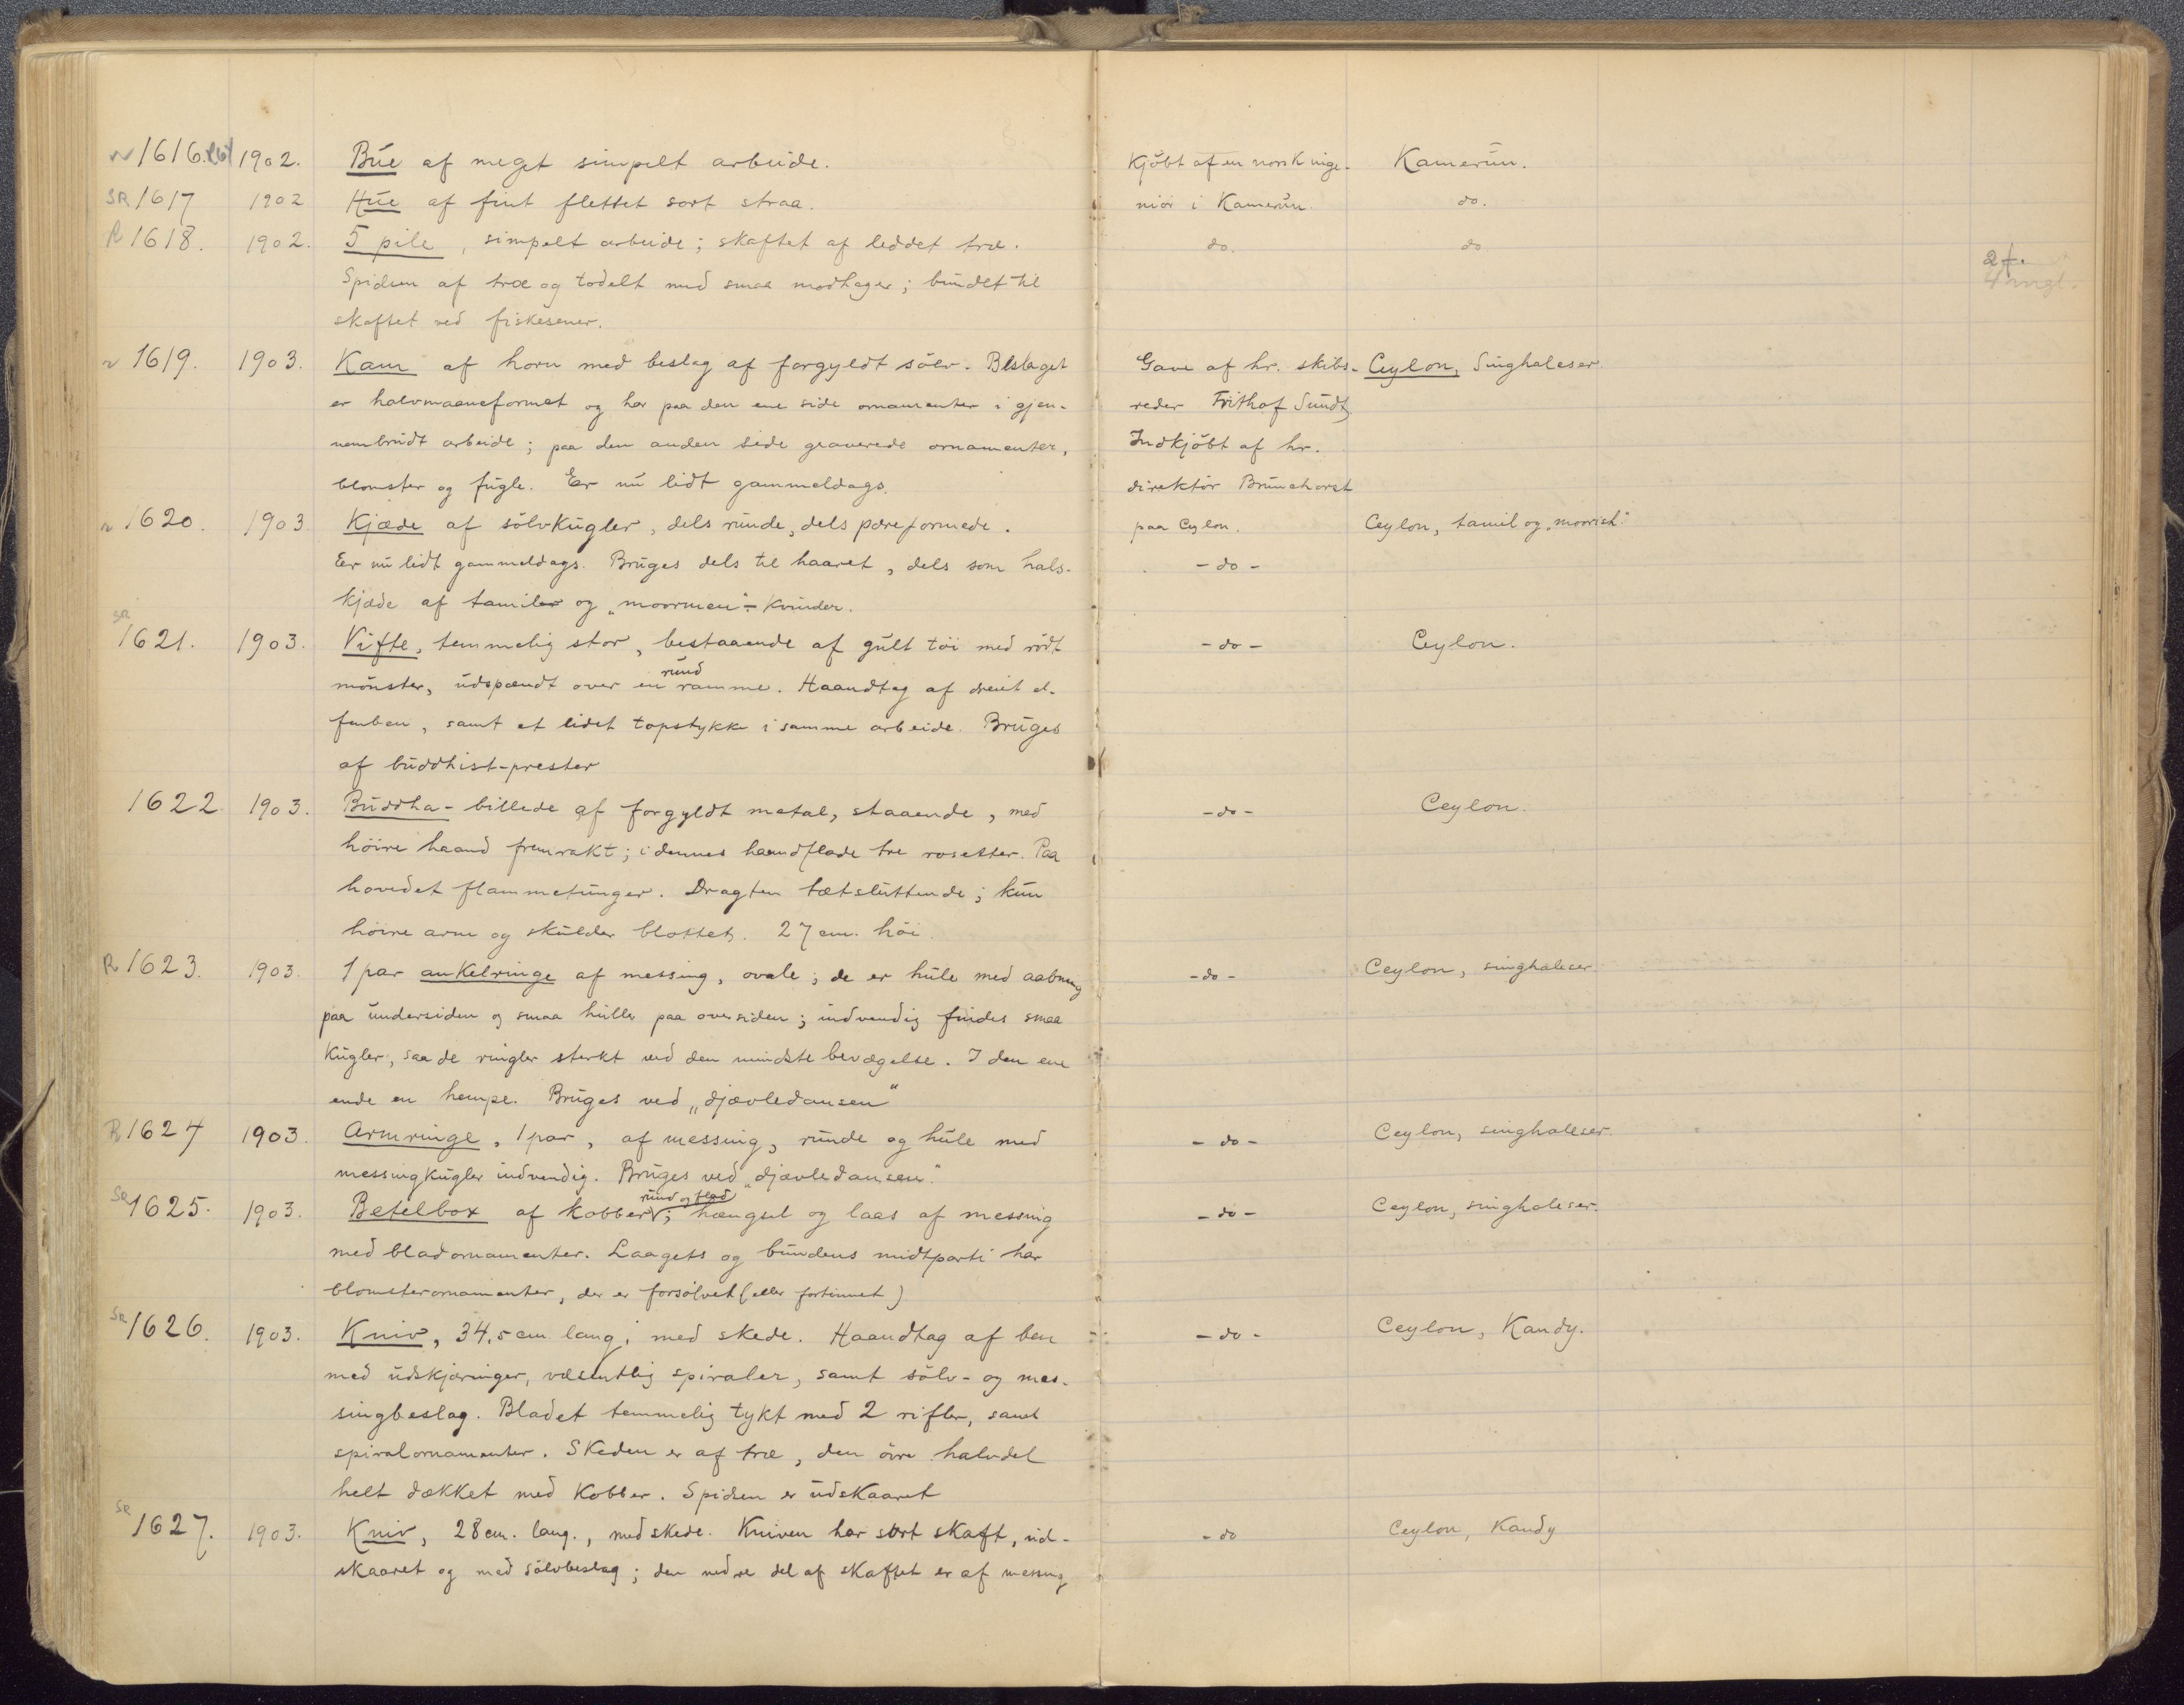 1616. 1902. Bue af meget simpelt arbeide. Kjöbt af en norsk inge- Kamerun.
SR 1617 1902 Hue af fint flettet sort straa. niör i Kamerun. do.
R 1618. 1902. 5 pile, simpelt arbeide; skaftet af leddet træ. do. do
Spidsen af træ og todelt med smaa modhager; bundet til 2 f.
skaftet ved fiskesener. 4 mgl.
1619. 1903. Kam af horn med beslag af forgyldt sölv. Beslaget Gave af hr. skibs- Ceylon, Singhaleser
er halvmaaneformet og har paa den ene side ornamenter i gjen- reder Frithof Sundt,
nembrudt arbeide; paa den anden side graverede ornamenter, Indkjöbt af hr.
blomster og fugle. Er nu lidt gammeldags. direktör Brunchorst
1620. 1903 Kjæde af sölvkugler, dels runde, dels pæreformede. paa Ceylon. Ceylon, tamil og „moorish“
Er nu lidt gammeldags. Bruges dels til haaret, dels som hals- - do -
kjæde af tamiler og „moormen“-kvinder.
SR 1621. 1903. Vifte, temmelig stor, bestaaende af gult töi med rödt - do - Ceylon.
mönster, udspændt over en rund ramme. Haandtag af dreiet el-
fenben, samt et lidet topstykke i samme arbeide. Bruges
af buddhist-prester
1622 1903. Buddha-billede af forgyldt metal, staaende, med - do - Ceylon.
höire haand fremrakt; i dennes haandflade tre rosetter. Paa
hovedet flammetunger. Dragten tætsluttende; kun
höire arm og skulder blottet. 27 cm. höi
R 1623. 1903. 1 par ankelringe af messing, ovale; de er hule med aabning - do - Ceylon, singhaleser.
paa undersiden og smaa huller paa oversiden; indvendig findes smaa
kugler, saa de ringler sterkt ved den mindste bevægelse. I den ene
ende en hempe. Bruges ved „djævledansen“
R 1624 1903. Armringe, 1 par, af messing, runde og hule med - do - Ceylon, singhaleser.
messingkugler indvendig. Bruges ved „djævledansen“.
SR 1625. 1903. Betelbox af kobber, rund og flad; hængsel og laas af messing - do - Ceylon, singhaleser.
med bladornamenter. Laagets og bundens midtparti har
blomsterornamenter, der er forsölvet (eller fortinnet)
SR 1626. 1903. Kniv, 34,5 cm lang, med skede. Haandtag af ben - do - Ceylon, Kandy.
med udskjæringer, væsentlig spiraler, samt sölv- og mes-
singbeslag. Bladet temmelig tykt med 2 rifler, samt
spiralornamenter. Skeden er af træ, den övre halvdel
helt dækket med kobber. Spidsen er udskaaret
SR 1627. 1903. Kniv, 28 cm. lang., med skede. Kniven har sort skaft, ud- - do Ceylon, Kandy
skaaret og med sölvbeslag; den nedre del af skaftet er af messing